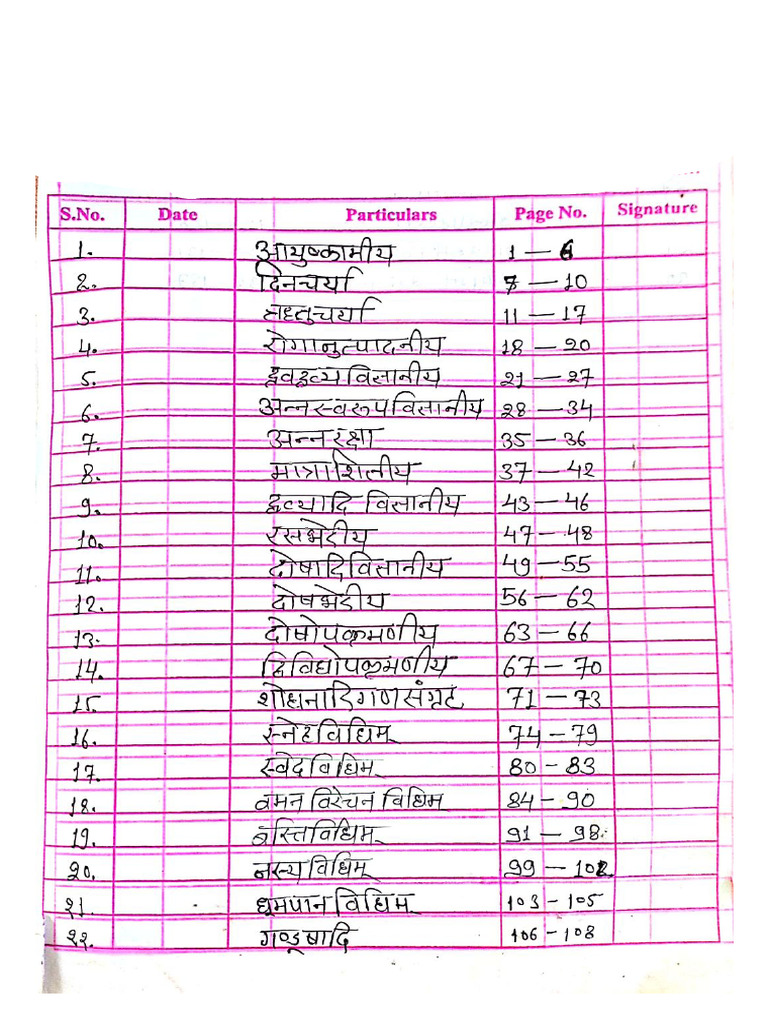 S.No. Date Particulars Page No. Signature
1. आयुष्कामीय 1 — 6
2. दिनचर्या 7 — 10
3. ऋतुचर्या 11 — 17
4. रोगानुत्पादनीय 18 — 20
5. द्रवद्रव्य विज्ञानीय 21 — 27
6. अन्नस्वरूप विज्ञानीय 28 — 34
7. अन्न रक्षा 35 — 36
8. मात्राशितीय 37 — 42
9. द्रव्यादि विज्ञानीय 43 — 46
10. रसभेदीय 47 — 48
11. दोषादि विज्ञानीय 49 — 55
12. दोषभेदीय 56 — 62
13. दोषोपक्रमणीय 63 — 66
14. द्विविधोपक्रमणीय 67 — 70
15. शोधनादिगण संग्रह 71 — 73
16. स्नेहविधिम् 74 — 79
17. स्वेदविधिम् 80 — 83
18. वमन विरेचन विधिम 84 — 90
19. बस्तिविधिम् 91 — 98
20. नस्य विधिम् 99 — 102
21. धूमपान विधिम् 103 - 105
22. गण्डूषादि 106 - 108